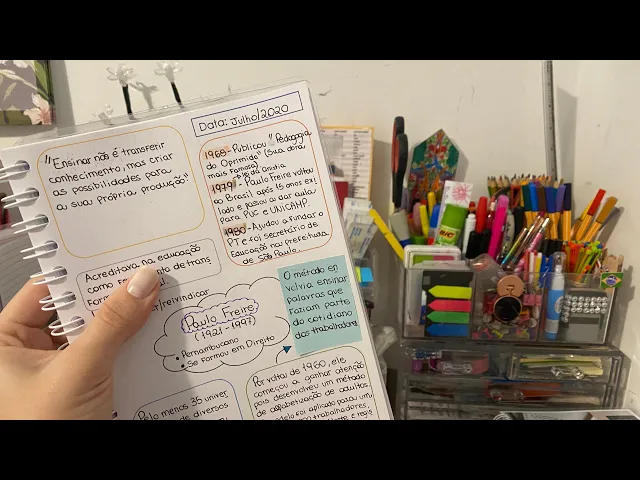 Data: Julho/2020
"Ensinar não é transferir
conhecimento, mas criar
as possibilidades para
a sua própria produção."
1968 - Publicou "Pedagogia
do Oprimido" (sua obra
mais famosa)
1979 - Paulo Freire voltou
ao Brasil após 15 anos exi
lado e passou a dar aula
para PUC e UNICAMP.
1980 - Ajudou a fundar o
PT e foi secretário de
Educação na prefeitura
de São Paulo
Acreditava na educação
como de trans
forma
reivindicar
Paulo Freire
(1921 - 1997)
Pernambucano
Se formou em Direito
O método en
volvia ensinar
palavras que
faziam parte
do cotidiano
dos trabalhadores
Pelo menos 35 univer
de diversos
Por volta de 1960, ele
começou a ganhar atenção
pois desenvolveu um método
de alfabetização de adultos
foi aplicado para um
trabalhadores,
e regis